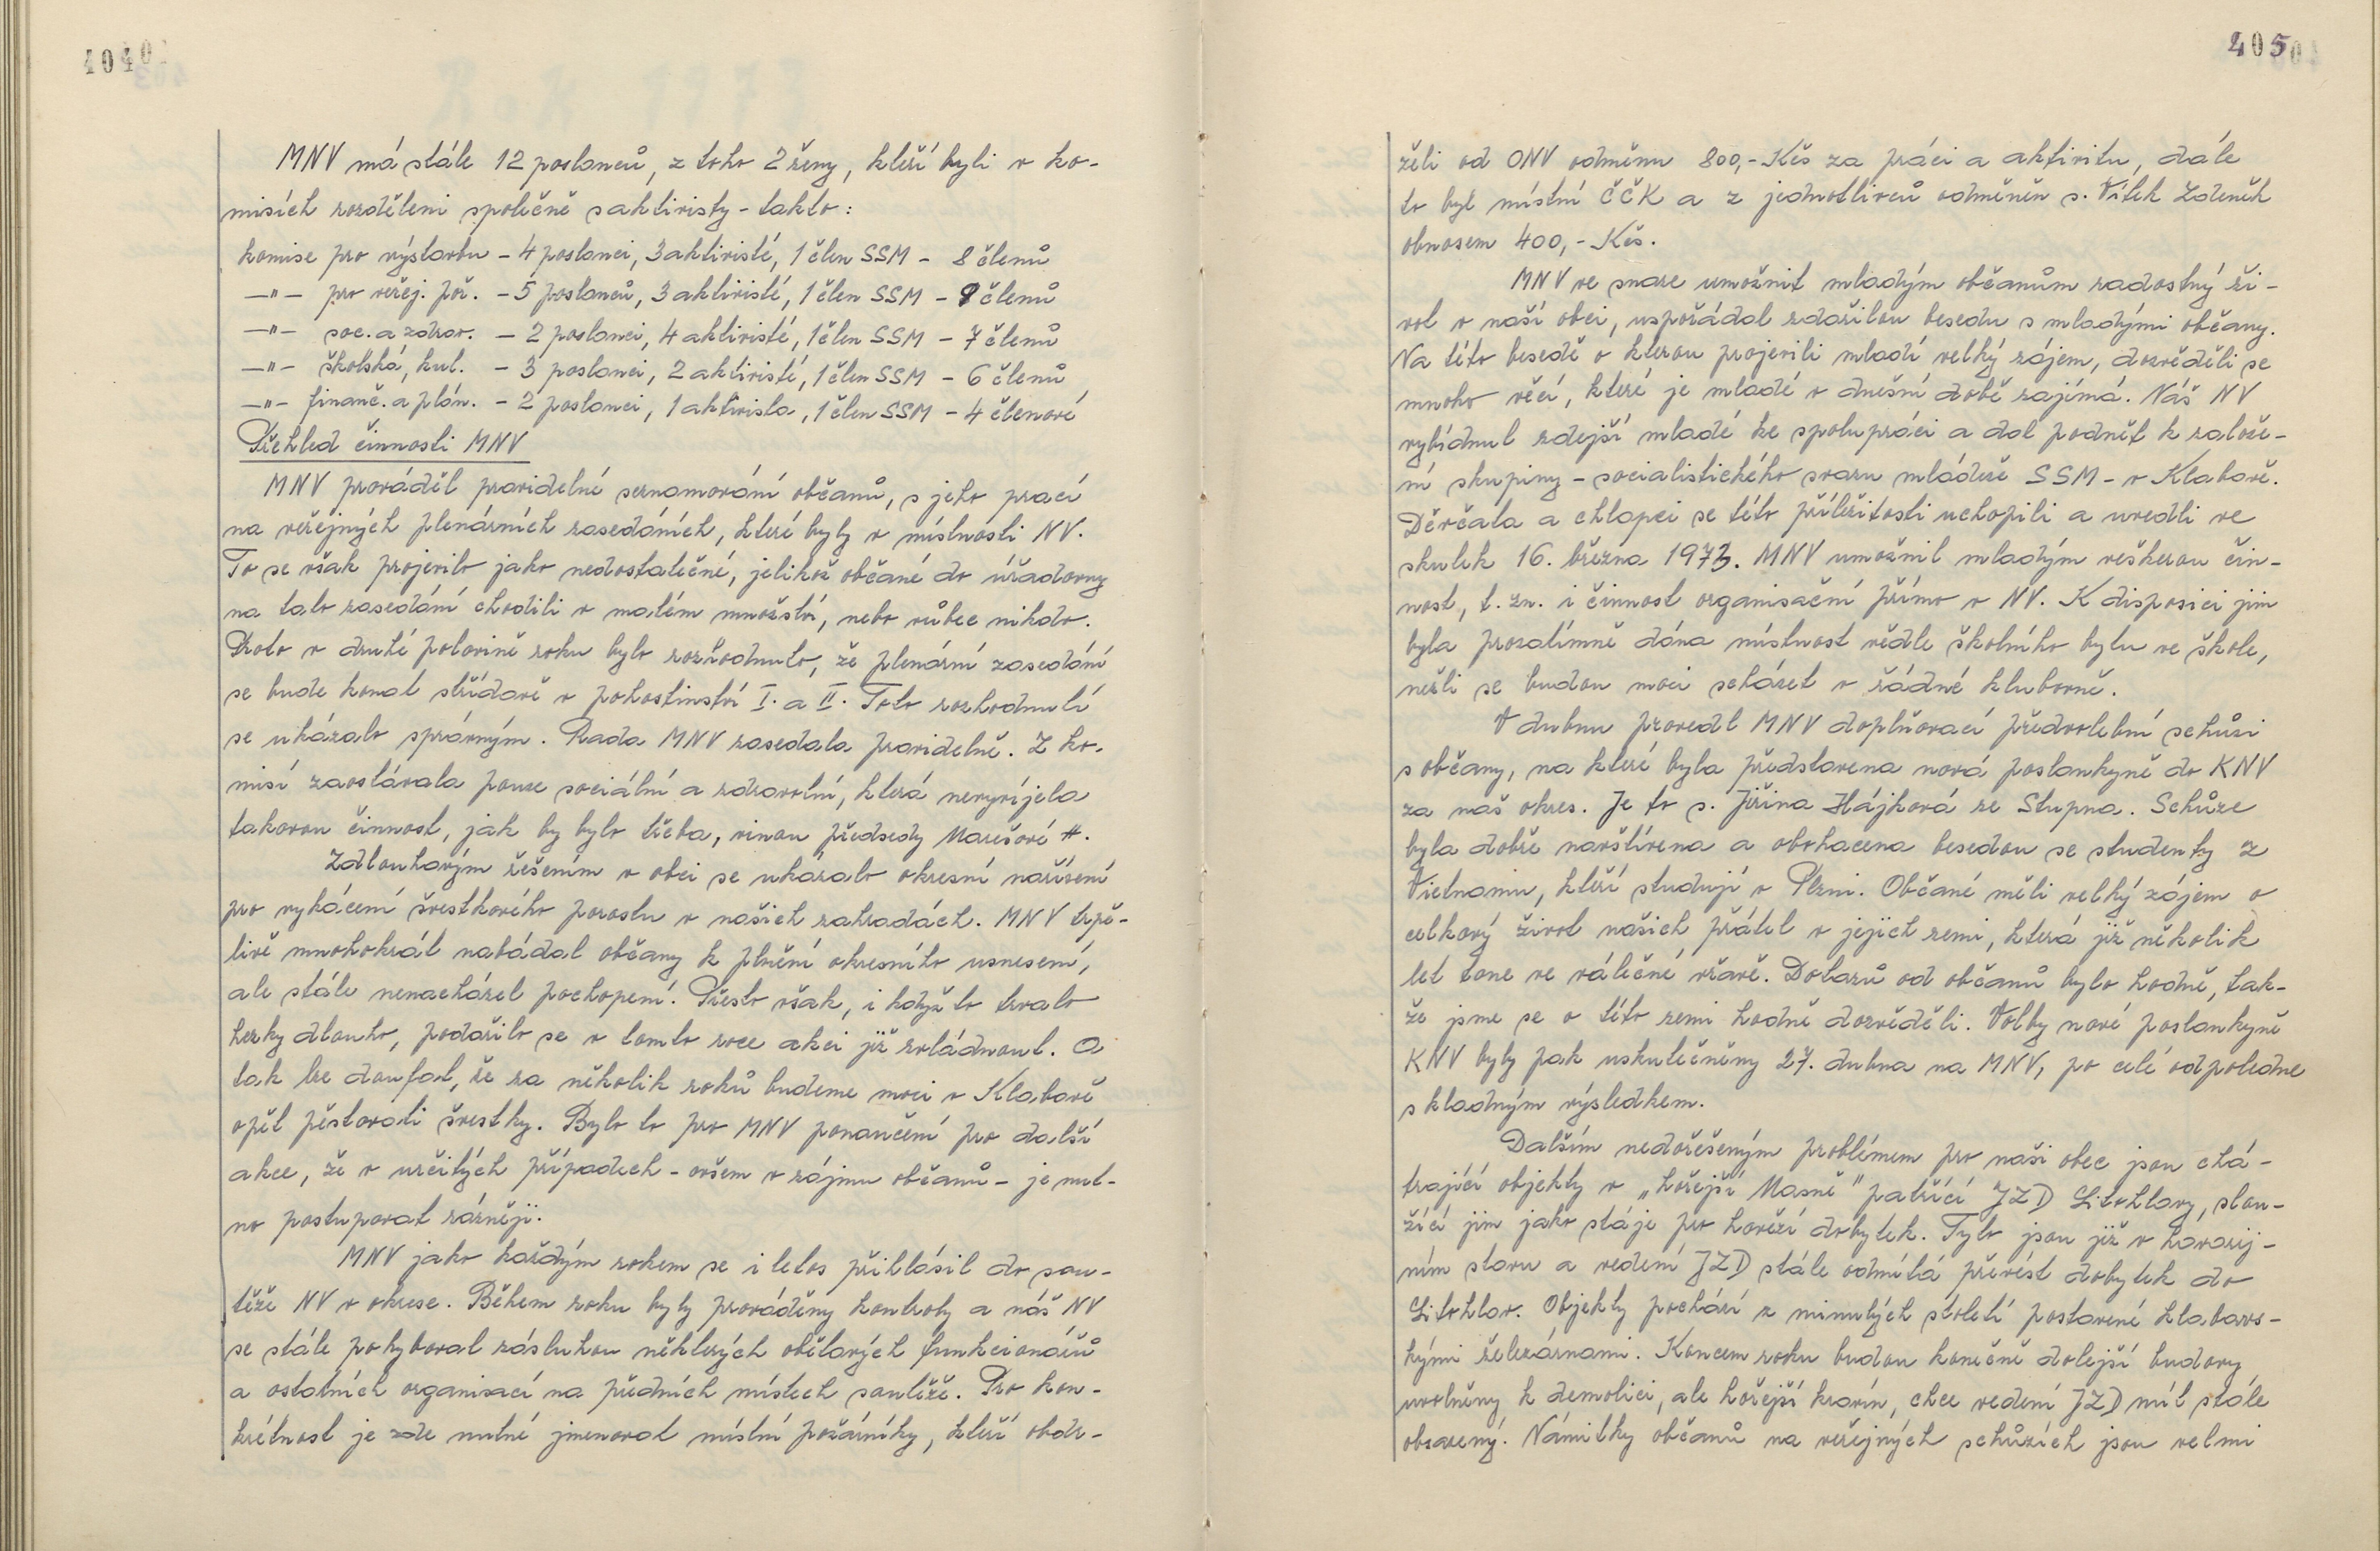 404
MNV má stále 12 poslanců, z toho 2 ženy, kteří byli v ko-
misích rozděleni společně s aktivisty - takto:
komise pro výstavbu - 4 poslanci, 3 aktivisté, 1 člen SSM - 8 členů
—"— pro veřej. poř. - 5 poslanců, 3 aktivisté, 1 člen SSM - 9 členů
—"— soc. a zdrav. - 2 poslanci, 4 aktivisté, 1 člen SSM - 7 členů
—"— školská, kul. - 3 poslanci, 2 aktivisté, 1 člen SSM - 6 členů
—"— finanč. a plán. - 2 poslanci, 1 aktivista, 1 člen SSM - 4 členové
Přehled činnosti MNV
MNV prováděl pravidelné seznamování občanů, s jeho prací
na veřejných plenárních zasedáních, které byly v místnosti NV.
To se však projevilo jako nedostatečné, jelikož občané do úřadovny
na tato zasedání chodili v malém množství, nebo vůbec nikdo.
Proto v druhé polovině roku bylo rozhodnuto, že plenární zasedání
se bude konat střídavě v pohostinství I. a II. Toto rozhodnutí
se ukázalo správným. Rada MNV zasedala pravidelně. Z ko-
misí zaostávala pouze sociální a zdravotní, která nevyvíjela
takovou činnost, jak by bylo třeba, vinou předsedy Marešové #.
Zdlouhavým řešením v obci se ukázalo okresní nařízení
pro vykácení švestkového porostu v našich zahradách. MNV trpě-
livě mnohokrát nabádal občany k plnění okresního usnesení,
ale stále nenacházel pochopení. Přesto však, i když to trvalo
hezky dlouho, podařilo se v tomto roce akci již zvládnout. A
tak lze doufat, že za několik roků budeme moci v Klabavě
opět pěstovati švestky. Bylo to pro MNV ponaučení pro další
akce, že v určitých případech - ovšem v zájmu občanů - je nut-
no postupovat rázněji.
MNV jako každým rokem se i letos přihlásil do sou-
těže NV v okrese. Během roku byly prováděny kontroly a náš NV
se stále pohyboval zásluhou některých obětavých funkcionářů
a ostatních organisací na předních místech soutěže. Pro kon-
krétnost je zde nutné jmenovat místní požárníky, kteří obdr-
405
želi od ONV odměnu 800,- Kčs za práci a aktivitu, dále
to byl místní ČČK a z jednotlivců odměněn s. Vítek Zdeněk
obnosem 400,- Kčs.
MNV ve snaze umožnit mladým občanům radostný ži-
vot v naší obci, uspořádal zdařilou besedu s mladými občany.
Na této besedě o kterou projevili mladí velký zájem, dozvěděli se
mnoho věcí, které je mladé v dnešní době zajímá. Náš NV
vybídnul zdejší mladé ke spolupráci a dal podnět k založe-
ní skupiny - socialistického svazu mládeže SSM - v Klabavě.
Děvčata a chlapci se této příležitosti uchopili a uvedli ve
skutek 16. března 1973. MNV umožnil mladým veškerou čin-
nost, t. zn. i činnost organisační přímo v NV. K disposici jim
byla prozatímně dána místnost vedle školního bytu ve škole,
nežli se budou moci scházet v řádné klubovně.
V dubnu provedl MNV doplňovací předvolební schůzi
s občany, na které byla představena nová poslankyně do KNV
za náš okres. Je to s. Jiřina Hájková ze Stupna. Schůze
byla dobře navštívena a obohacena besedou se studenty z
Vietnamu, kteří studují v Plzni. Občané měli velký zájem o
celkový život našich přátel v jejich zemi, která již několik
let tone ve válečné vřavě. Dotazů od občanů bylo hodně, tak-
že jsme se o této zemi hodně dozvěděli. Volby nové poslankyně
KNV byly pak uskutečněny 27. dubna na MNV, po celé odpoledne
s kladným výsledkem.
Dalším nedořešeným problémem pro naši obec jsou chá-
trající objekty v „hořejší Masně" patřící JZD Litohlavy, slou-
žící jim jako stáje pro hovězí dobytek. Tyto jsou již v havarij-
ním stavu a vedení JZD stále odmítá převést dobytek do
Litohlav. Objekty pochází z minulých století postavené klabavs-
kými železárnami. Koncem roku budou konečně dolejší budovy
uvolněny k demolici, ale hořejší kravín, chce vedení JZD mít stále
obsazený. Námitky občanů na veřejných schůzích jsou velmi